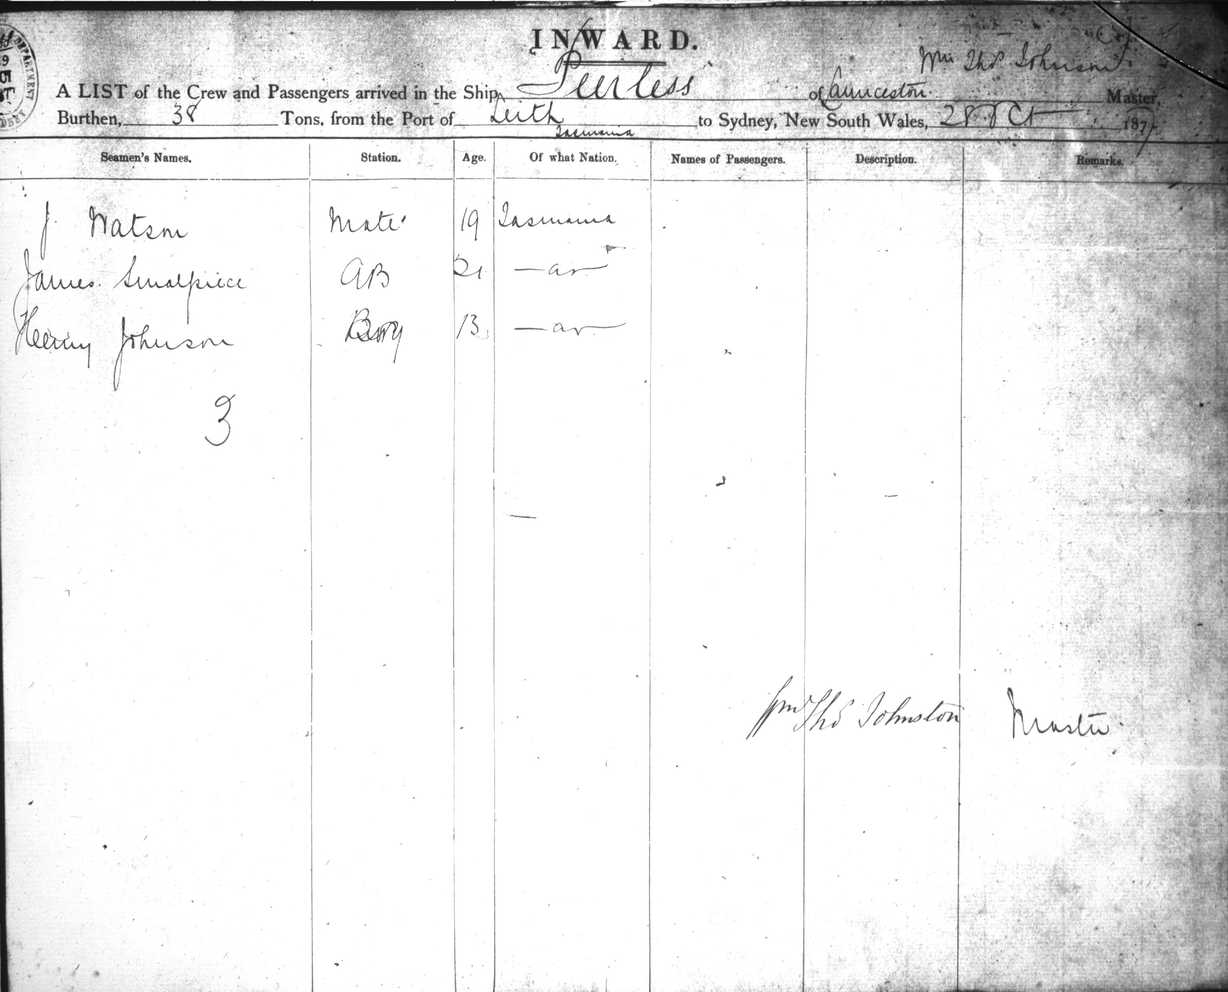 INWARD.
Wm Thos Johnson
A LIST of the Crew and Passengers arrived in the Ship, Peerless of Launceston Master,
Burthen, 38 Tons, from the Port of Leith Tasmania to Sydney, New South Wales, 28 Oct 187
Seamen's Names. Station. Age. Of what Nation. Names of Passengers. Description. Remarks.
J Watson Mate 19 Tasmania
James Smalpiece AB 21
Henry Johnson Boy 13
3
Wm Thos Johnston Master